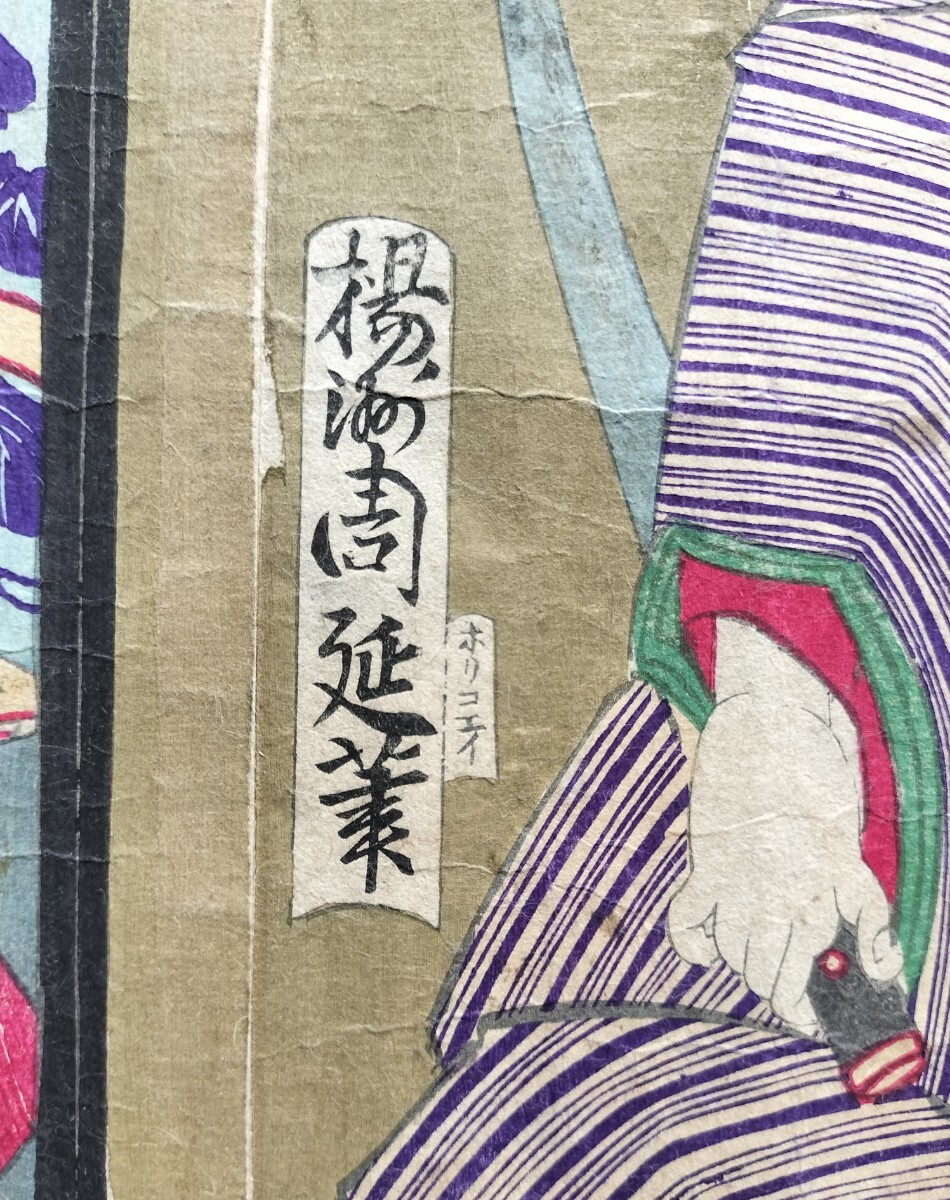 楊洲周延筆
ホリコエイ